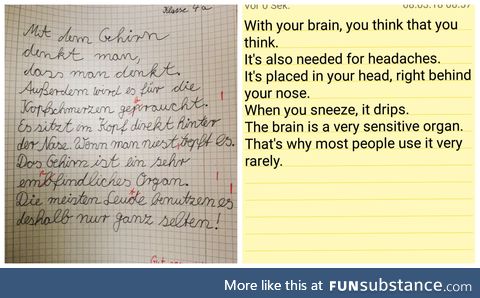 Klasse 4a
Mit dem Gehirn
denkt man,
dass man denkt.
Außerdem wird es für die
Kopfschmerzen gepraucht.
Es sitzt im Kopf direkt hinter
der Nase. Wenn man niest, tropft es.
Das Gehirn ist ein sehr
embfindliches Organ.
Die meisten Leude benutzen es
deshalb nur ganz selten!
Vor 0 Sek.
With your brain, you think that you
think.
It's also needed for headaches.
It's placed in your head, right behind
your nose.
When you sneeze, it drips.
The brain is a very sensitive organ.
That's why most people use it very
rarely.
More like this at FUNsubstance.com